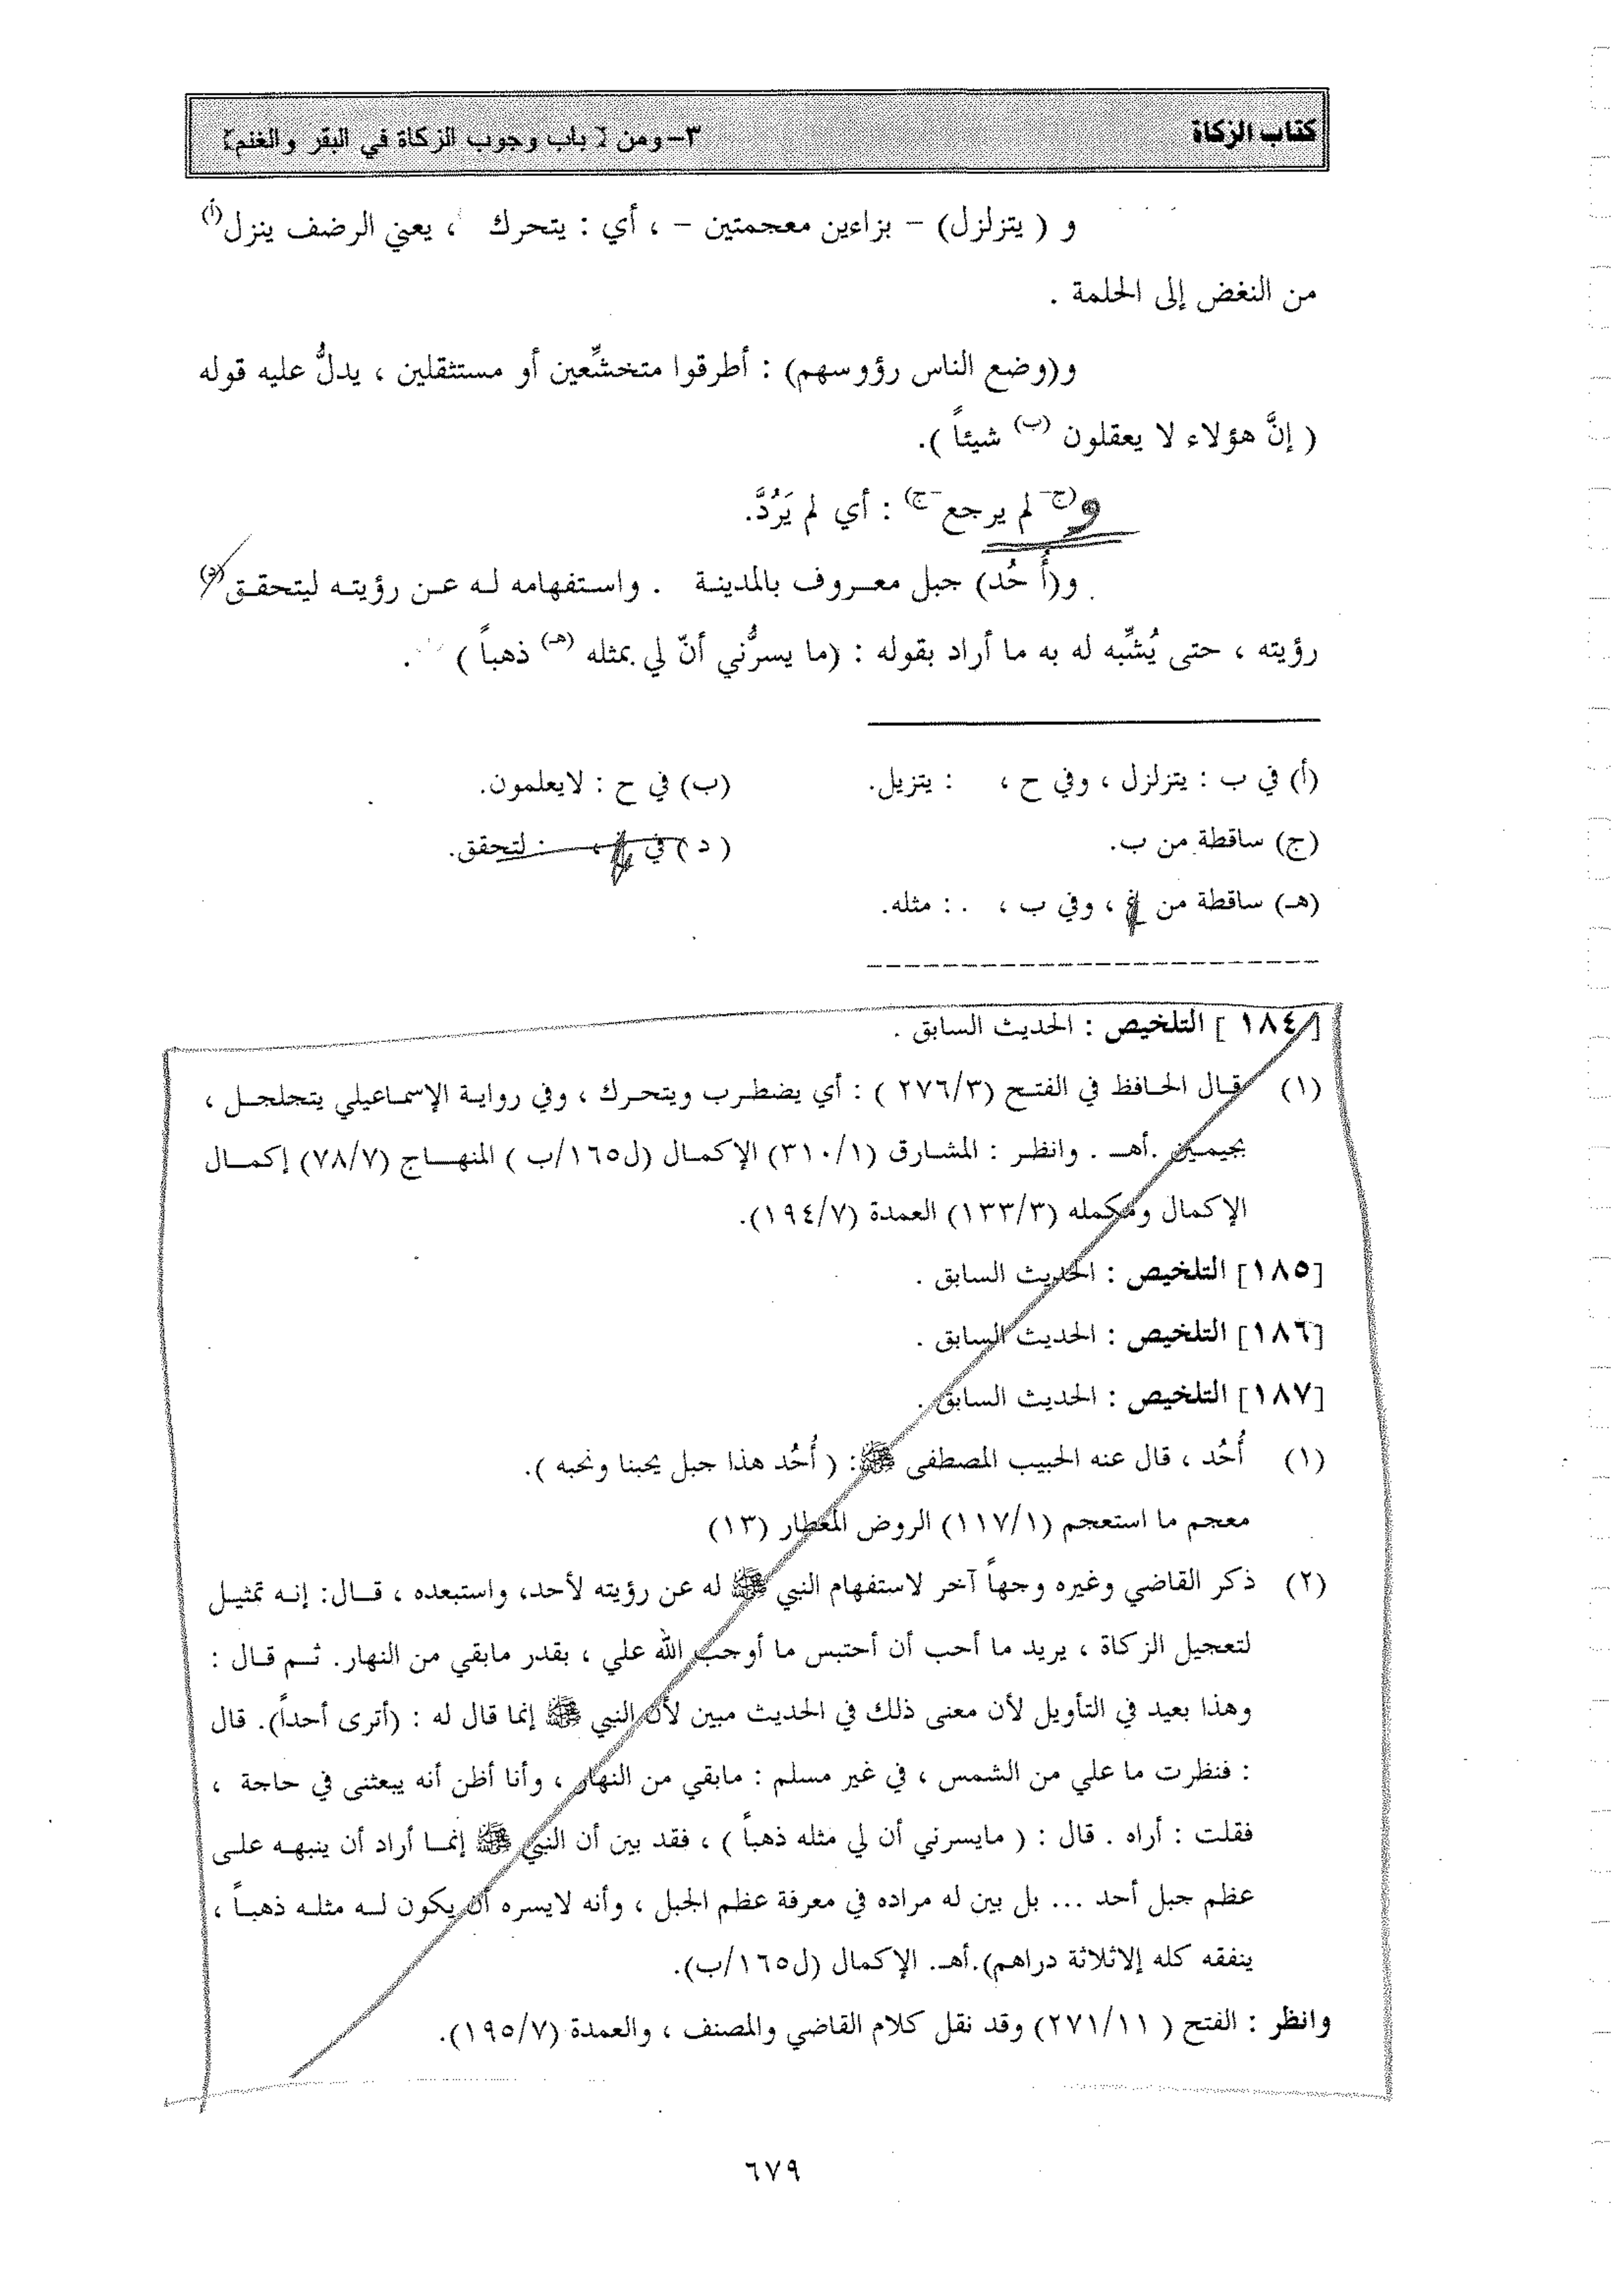 كتاب الزكاة
٣- ومن [ باب وجوب الزكاة في البقر والغنم]
و ( يتزلزل) - بزاءين معجمتين - ، أي : يتحرك ، يعني الرضف ينزل(أ)
من النغض إلى الحلمة .
و(وضع الناس رؤوسهم) : أطرقوا متخشِّعين أو مستثقلين ، يدلُّ عليه قوله
( إنَّ هؤلاء لا يعقلون (ب) شيئاً ).
و(ج- لم يرجع -ج) : أي لم يَرُدَّ.
و(أُحُد) جبل معروف بالمدينة . واستفهامه له عن رؤيته ليتحقق(د)
رؤيته ، حتى يُشبِّه له به ما أراد بقوله : (ما يسرُّني أنّ لي بمثله (هـ) ذهباً ) .
(أ) في ب : يتزلزل ، وفي ح ، : يتزيل.
(ب) في ح : لايعلمون.
(ج) ساقطة من ب.
( د ) في ، : لتحقق.
(هـ) ساقطة من ، وفي ب ، . : مثله.
[١٨٤ ] التلخيص : الحديث السابق .
(١) قال الحافظ في الفتح (٢٧٦/٣ ) : أي يضطرب ويتحرك ، وفي رواية الإسماعيلي يتجلجل ،
بجيمين .أهـ . وانظر : المشارق (٣١٠/١) الإكمال (ل١٦٥/ب ) المنهاج (٧٨/٧) إكمال
الإكمال ومكمله (١٣٣/٣) العمدة (١٩٤/٧).
[١٨٥] التلخيص : الحديث السابق .
[١٨٦] التلخيص : الحديث السابق .
[١٨٧] التلخيص : الحديث السابق .
(١) أُحُد ، قال عنه الحبيب المصطفى ﷺ : ( أُحُد هذا جبل يحبنا ونحبه ).
معجم ما استعجم (١١٧/١) الروض المعطار (١٣)
(٢) ذكر القاضي وغيره وجهاً آخر لاستفهام النبي ﷺ له عن رؤيته لأحد، واستبعده ، قال: إنه تمثيل
لتعجيل الزكاة ، يريد ما أحب أن أحتبس ما أوجب الله علي ، بقدر مابقي من النهار. ثم قال :
وهذا بعيد في التأويل لأن معنى ذلك في الحديث مبين لأن النبي ﷺ إنما قال له : (أترى أحداً). قال
: فنظرت ما علي من الشمس ، في غير مسلم : مابقي من النهار ، وأنا أظن أنه يبعثنى في حاجة ،
فقلت : أراه . قال : ( مايسرني أن لي مثله ذهباً ) ، فقد بين أن النبي ﷺ إنما أراد أن ينبهه على
عظم جبل أحد ... بل بين له مراده في معرفة عظم الجبل ، وأنه لايسره أن يكون له مثله ذهباً ،
ينفقه كله إلاثلاثة دراهم).أهـ. الإكمال (ل١٦٥/ب).
وانظر : الفتح ( ٢٧١/١١) وقد نقل كلام القاضي والمصنف ، والعمدة (١٩٥/٧).
٦٧٩